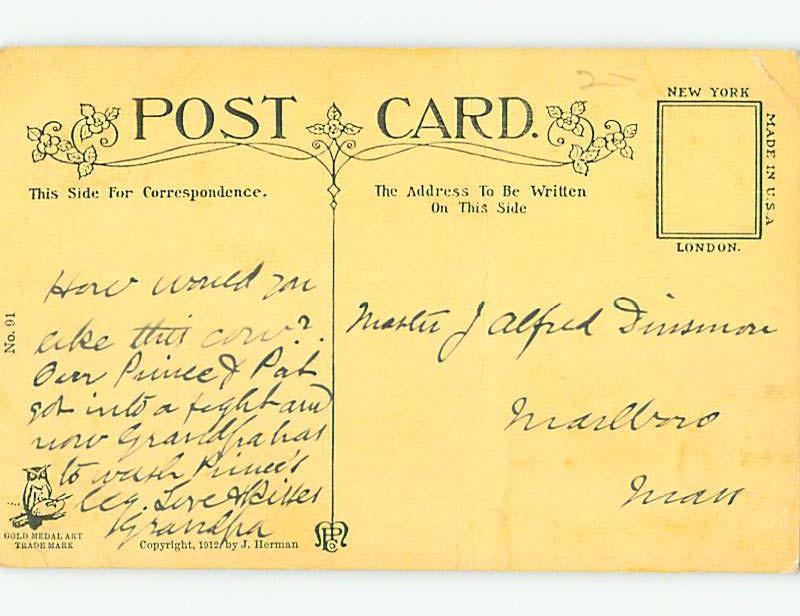 2-
NEW YORK
POST CARD.
MADE IN U.S.A
This Side For Correspondence.
The Address To Be Written
On This Side
LONDON.
How would you
like this cow?
Our Prince & Pat
got into a fight and
now Grandpa has
to wash Prince's
leg. Love & Kisses
Grandpa
Master J Alfred Dinsmore
Marlboro
Mass
No. 91
GOLD MEDAL ART
TRADE MARK
Copyright, 1912, by J. Herman